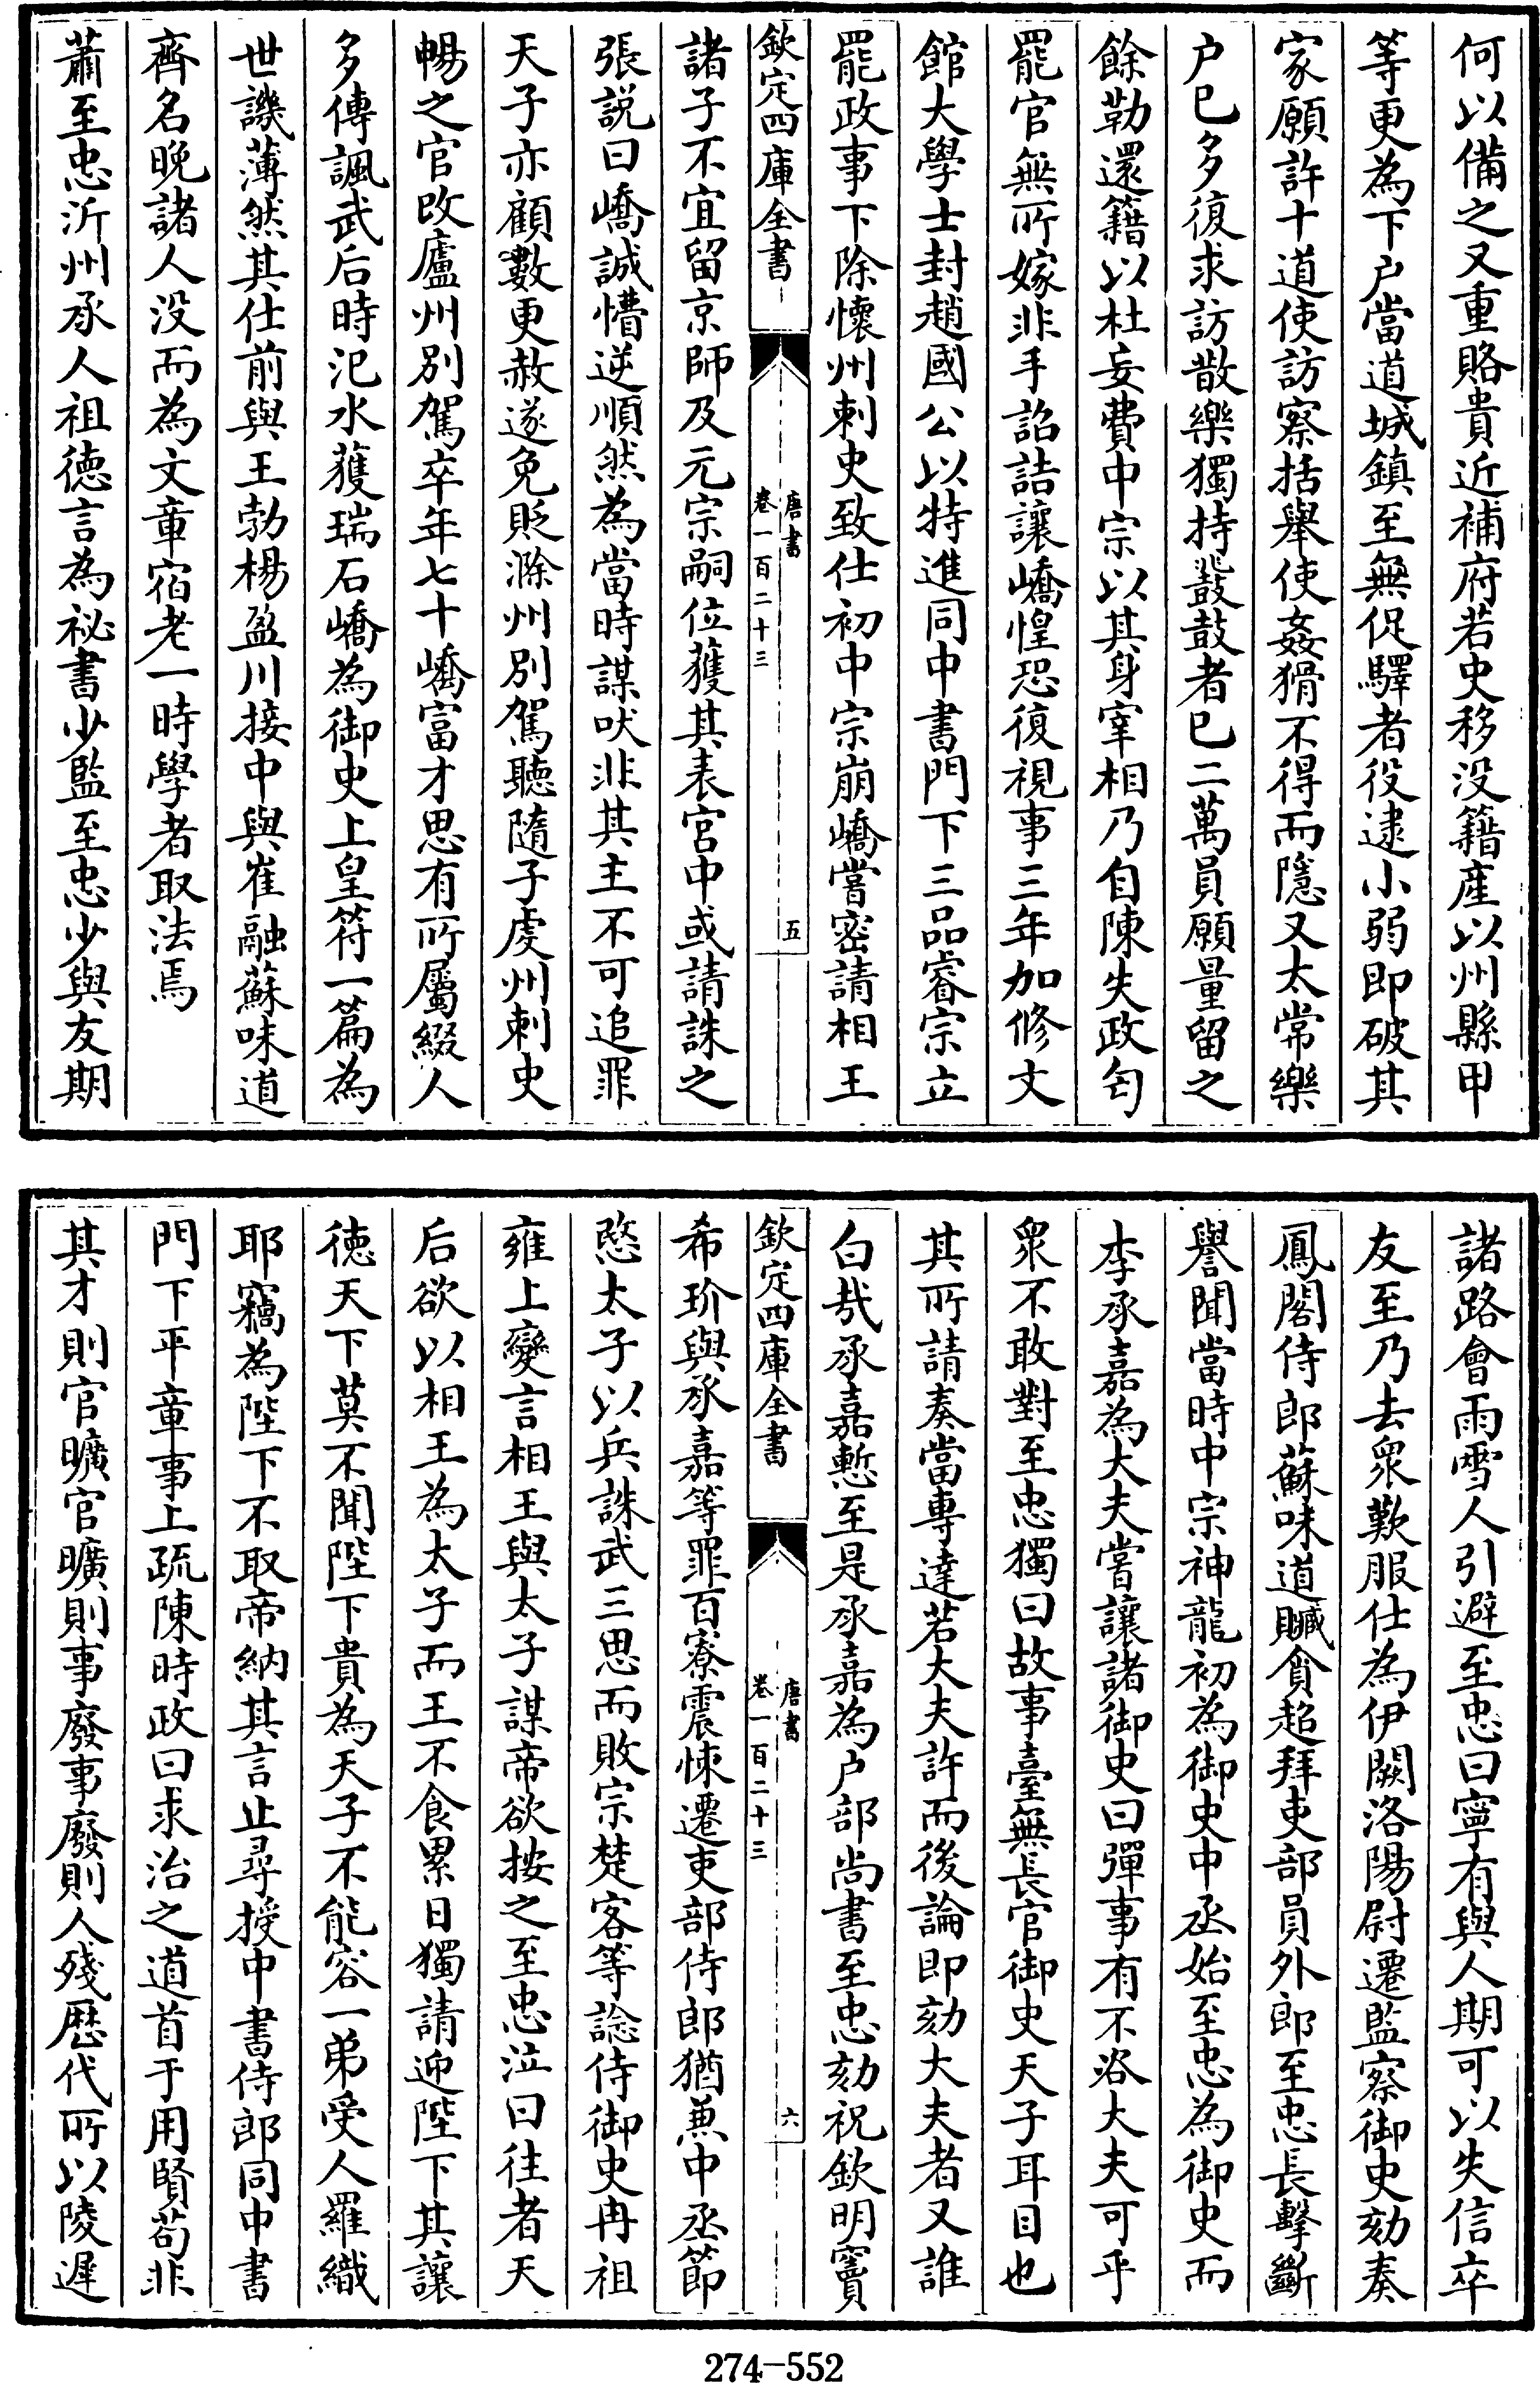 何以備之又重賂貴近補府若史移没籍産以州縣甲
等更為下户當道城鎮至無促驛者役逮小弱即破其
家願許十道使訪察括舉使姦猾不得而隱又太常樂
户已多復求訪散樂獨持鼗鼓者已二萬員願量留之
餘勒還籍以杜妄費中宗以其身宰相乃自陳失政匄
罷官無所嫁非手詔詰讓嶠惶恐復視事三年加修文
館大學士封趙國公以特進同中書門下三品睿宗立
罷政事下除懷州刺史致仕初中宗崩嶠嘗密請相王
欽定四庫全書
唐書
卷一百二十三
五
諸子不宜留京師及元宗嗣位獲其表宮中或請誅之
張説曰嶠誠懵逆順然為當時謀吠非其主不可追罪
天子亦顧數更赦遂免貶滁州別駕聽隨子虔州刺史
暢之官改廬州別駕卒年七十嶠富才思有所屬綴人
多傳諷武后時汜水獲瑞石嶠為御史上皇符一篇為
世譏薄然其仕前與王勃楊盈川接中與崔融蘇味道
齊名晚諸人没而為文章宿老一時學者取法焉
蕭至忠沂州承人祖徳言為祕書少監至忠少與友期
諸路會雨雪人引避至忠曰寧有與人期可以失信卒
友至乃去衆歎服仕為伊闕洛陽尉遷監察御史劾奏
鳳閣侍郎蘇味道贓貪超拜吏部員外郎至忠長擊斷
譽聞當時中宗神龍初為御史中丞始至忠為御史而
李承嘉為大夫嘗讓諸御史曰彈事有不咨大夫可乎
衆不敢對至忠獨曰故事臺無長官御史天子耳目也
其所請奏當專達若大夫許而後論即劾大夫者又誰
白㢤承嘉慙至是承嘉為户部尚書至忠劾祝欽明竇
欽定四庫全書
唐書
卷一百二十三
六
希玠與承嘉等罪百寮震悚遷吏部侍郎猶兼中丞節
愍太子以兵誅武三思而敗宗楚客等諗侍御史冉祖
雍上變言相王與太子謀帝欲按之至忠泣曰往者天
后欲以相王為太子而王不食累日獨請迎陛下其讓
徳天下莫不聞陛下貴為天子不能容一弟受人羅織
耶竊為陛下不取帝納其言止尋授中書侍郎同中書
門下平章事上疏陳時政曰求治之道首于用賢苟非
其才則官曠官曠則事廢事廢則人殘歴代所以陵遲
274-552